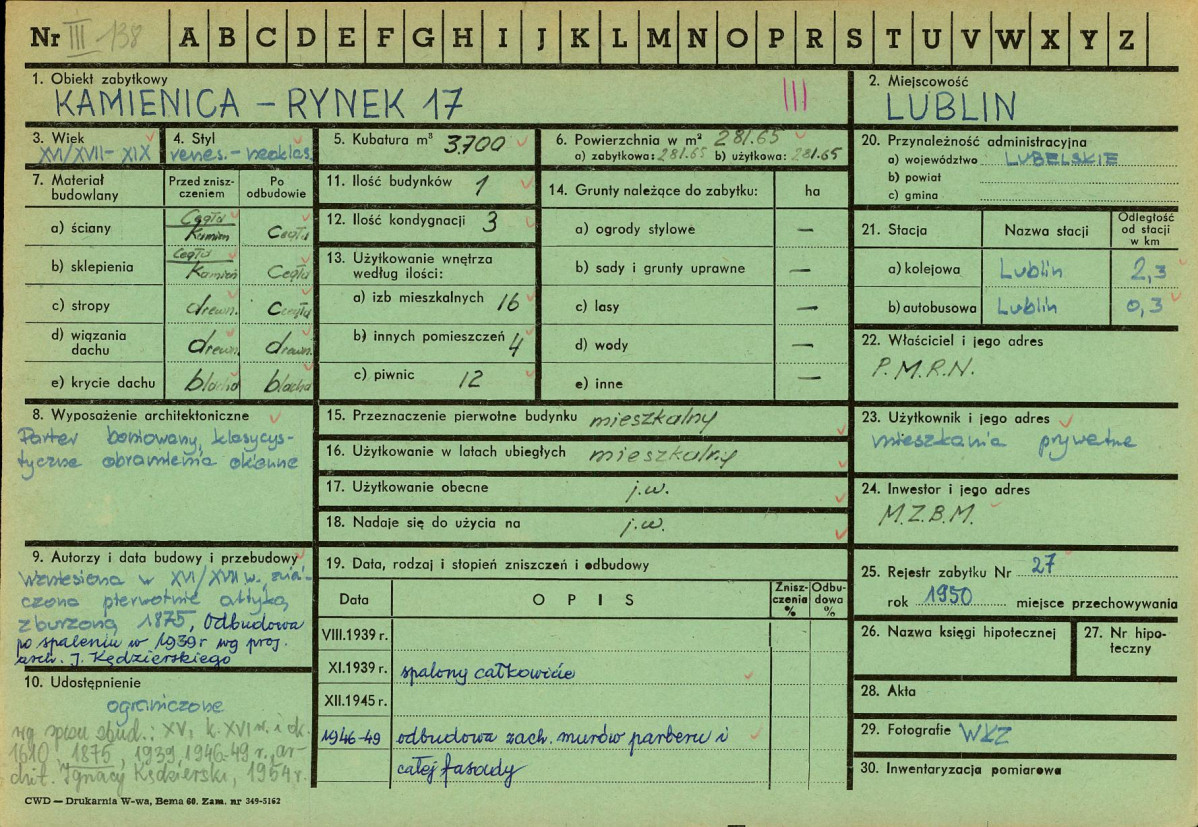 Nr III 138 A B C D E F G H I J K L M N O P R S T U V W X Y Z
1. Obiekt zabytkowy
KAMIENICA – RYNEK 17
III
2. Miejscowość
LUBLIN
3. Wiek
XVI/XVII– XIX
4. Styl
renes. – neoklas.
5. Kubatura m³ 3.700
6. Powierzchnia w m² 281.65
a) zabytkowa: 281.65 b) użytkowa: 281.65
20. Przynależność administracyjna
a) województwo LUBELSKIE
b) powiat
c) gmina
7. Materiał budowlany
Przed zniszczeniem
Po odbudowie
a) ściany Cegła Kamień Cegła
b) sklepienia Cegła Kamień Cegła
c) stropy drewn. Cegła
d) wiązania dachu drewn. drewn.
e) krycie dachu blacha blacha
11. Ilość budynków 1
12. Ilość kondygnacji 3
13. Użytkowanie wnętrza
według ilości:
a) izb mieszkalnych 16
b) innych pomieszczeń 4
c) piwnic 12
14. Grunty należące do zabytku: ha
a) ogrody stylowe —
b) sady i grunty uprawne —
c) lasy —
d) wody —
e) inne —
21. Stacja
Nazwa stacji
Odległość
od stacji
w km
a) kolejowa Lublin 2,3
b) autobusowa Lublin 0,3
22. Właściciel i jego adres
P.M.R.N.
8. Wyposażenie architektoniczne
Parter boniowany, klasycys-
tyczne obramienia okienne
15. Przeznaczenie pierwotne budynku mieszkalny
16. Użytkowanie w latach ubiegłych mieszkalny
17. Użytkowanie obecne j.w.
18. Nadaje się do użycia na j.w.
23. Użytkownik i jego adres
mieszkania prywatne
24. Inwestor i jego adres
M.Z.B.M.
9. Autorzy i data budowy i przebudowy
Wzniesiona w XVI/XVII w., zwień-
czona pierwotnie attyką,
zburzoną 1875, Odbudowa
po spaleniu w 1939 r wg proj.
arch. J. Kędzierskiego
10. Udostępnienie
ograniczone
XV, k. XVI w. i ok.
1610, 1875, 1939, 1946-49 r, ar-
chit. Ignacy Kędzierski, 1954 r.
19. Data, rodzaj i stopień zniszczeń i odbudowy
Data
OPIS
Znisz-
czenia
%
Odbu-
dowa
%
VIII.1939 r.
XI.1939 r. spalony całkowicie
XII.1945 r.
1946-49 odbudowa zach. murów parteru i
całej fasady
25. Rejestr zabytku Nr 27
rok 1950 miejsce przechowywania
26. Nazwa księgi hipotecznej
27. Nr hipo-
teczny
28. Akta
29. Fotografie WKZ
30. Inwentaryzacja pomiarowa
CWD — Drukarnia W-wa, Bema 60. Zam. nr 349-5162